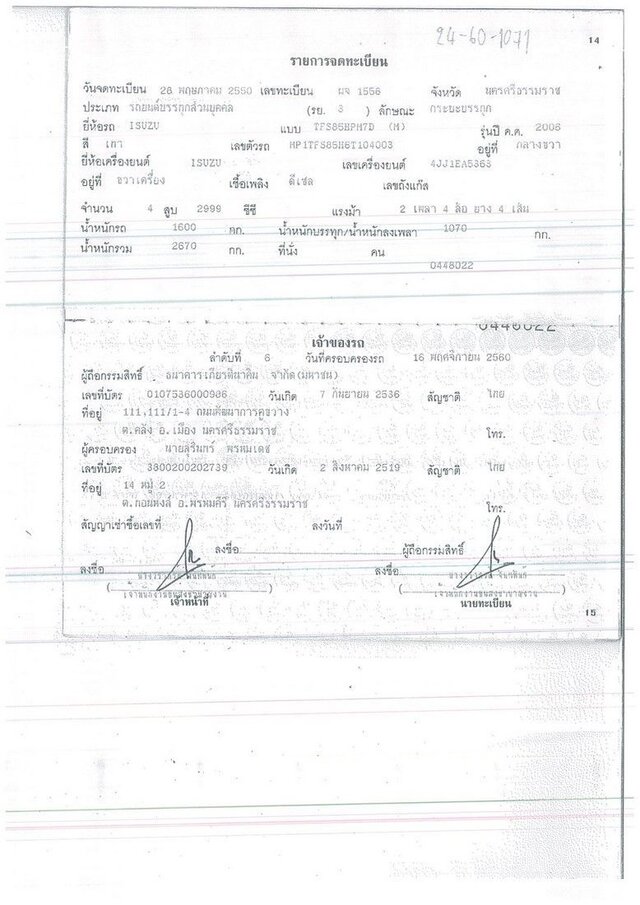 24-60-1071
14
รายการจดทะเบียน
วันจดทะเบียน 28 พฤษภาคม 2550 เลขทะเบียน ผจ 1556 จังหวัด นครศรีธรรมราช
ประเภท รถยนต์บรรทุกส่วนบุคคล (รย. 3 ) ลักษณะ กระบะบรรทุก
ยี่ห้อรถ ISUZU แบบ TFS85HPM7D (M) รุ่นปี ค.ศ. 2006
สี เทา เลขตัวรถ MP1TFS85H6T104003 อยู่ที่ กลางขวา
ยี่ห้อเครื่องยนต์ ISUZU เลขเครื่องยนต์ 4JJ1EA5363
อยู่ที่ ขวาเครื่อง เชื้อเพลิง ดีเซล เลขถังแก๊ส
จำนวน 4 สูบ 2999 ซีซี แรงม้า 2 เพลา 4 ล้อ ยาง 4 เส้น
น้ำหนักรถ 1600 กก. น้ำหนักบรรทุก/น้ำหนักลงเพลา 1070 กก.
น้ำหนักรวม 2670 กก. ที่นั่ง คน
0448022
0448022
เจ้าของรถ
ลำดับที่ 6 วันที่ครอบครองรถ 16 พฤศจิกายน 2560
ผู้ถือกรรมสิทธิ์ ธนาคารเกียรตินาคิน จำกัด(มหาชน)
เลขที่บัตร 0107536000986 วันเกิด 7 กันยายน 2536 สัญชาติ ไทย
ที่อยู่ 111,111/1-4 ถนนพัฒนาการคูขวาง
ต.คลัง อ.เมือง นครศรีธรรมราช โทร.
ผู้ครอบครอง นายสุรินทร์ พรหมเดช
เลขที่บัตร 3800200202739 วันเกิด 2 สิงหาคม 2519 สัญชาติ ไทย
ที่อยู่ 14 หมู่ 2
ต.ดอนตะโก อ.พรหมคีรี นครศรีธรรมราช โทร.
สัญญาเช่าซื้อเลขที่ ลงวันที่
ลงชื่อ ผู้ถือกรรมสิทธิ์
ลงชื่อ ลงชื่อ
เจ้าหน้าที่ นายทะเบียน
15